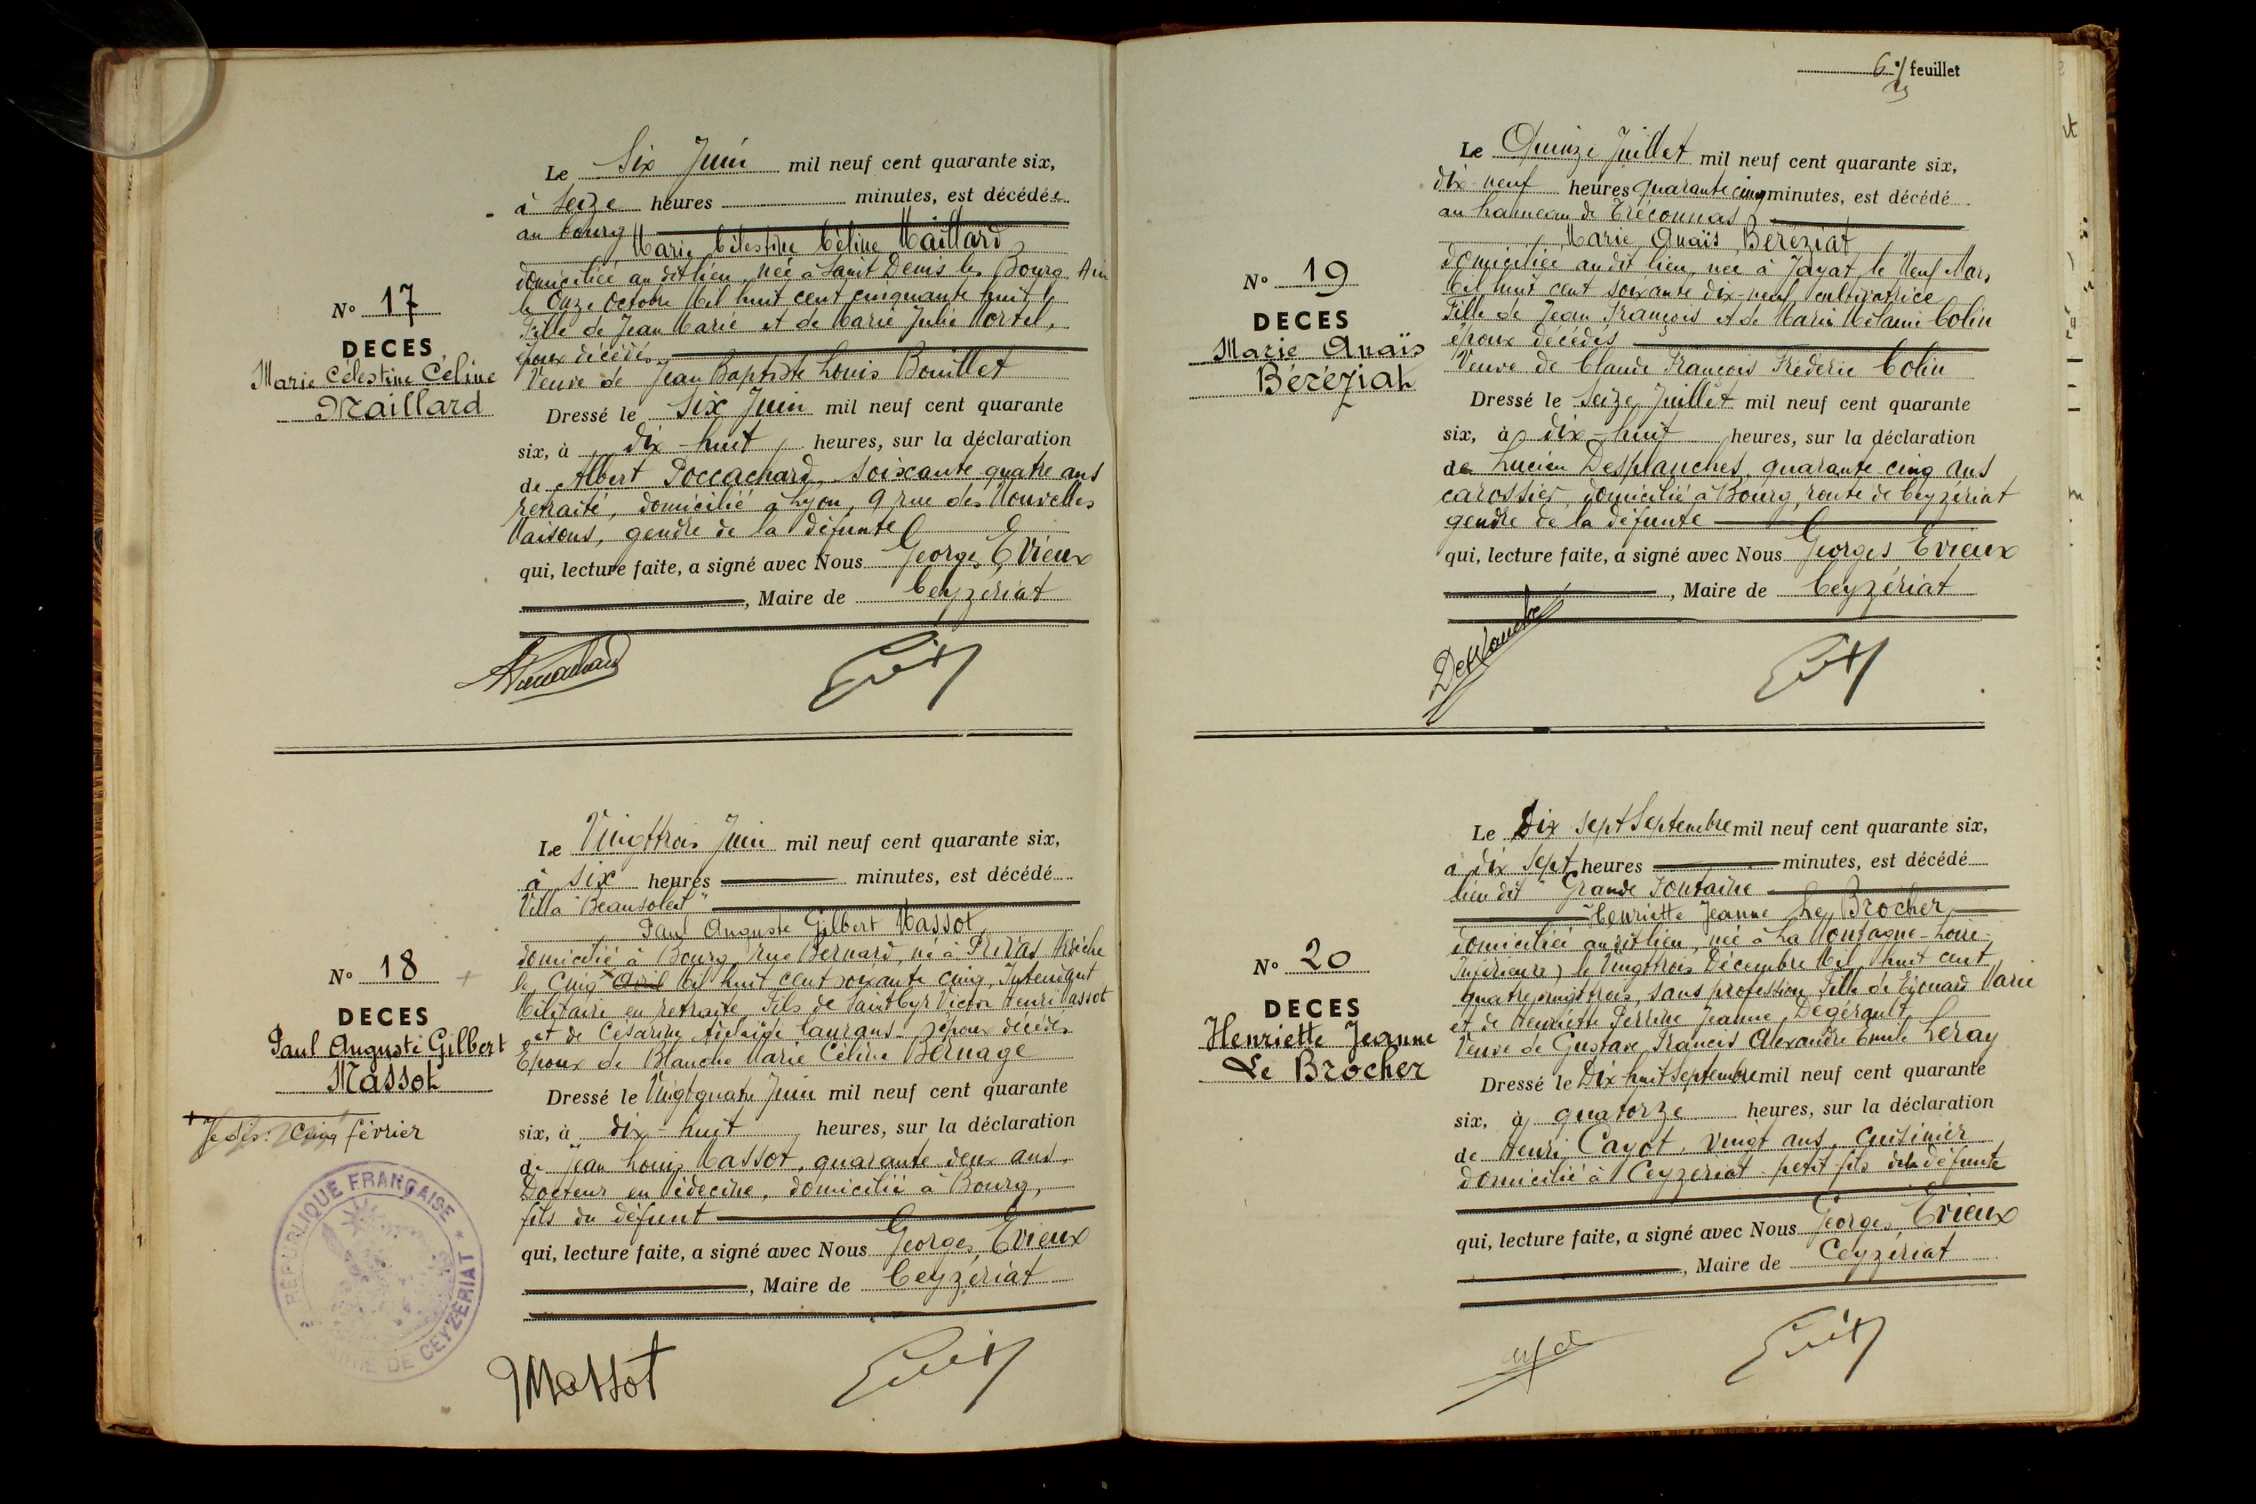 Le Six Juin mil neuf cent quarante six,
à seize heures minutes, est décédée
au bourg
Marie Célestine Céline Maillard
domiciliée audit lieu, née à Saint Denis les Bourg Ain
le Onze octobre Mil huit cent cinquante huit
Fille de Jean Marie et de Marie Julie Mortel,
époux décédés
Veuve de Jean Baptiste Louis Bouillet
N° 17
DECES
Marie Célestine Céline
Maillard
Dressé le Six Juin mil neuf cent quarante
six, à dix-huit heures, sur la déclaration
de Albert Poccachard, soixante quatre ans
retraité, domicilié à Lyon, 9 rue des Nouvelles
Maisons, gendre de la défunte
qui, lecture faite, a signé avec Nous Georges Evieux
, Maire de Ceyzériat
Le Vingt trois Juin mil neuf cent quarante six,
à six heures minutes, est décédé
Villa "Beausoleil"
Paul Auguste Gilbert Massot
domicilié à Bourg, rue Bernard, né à Privas Ardèche
le Cinq + Avril Mil huit cent soixante cinq, Intendant
Militaire en retraite, Fils de Saint Cyr Victor Henri Massot
et de Césarine Adélaïde Laurans époux décédés
Epoux de Blanche Marie Céline Bernage
N° 18 +
DECES
Paul Auguste Gilbert
Massot
+ Je dis: cinq février
Dressé le Vingt quatre Juin mil neuf cent quarante
six, à dix-huit heures, sur la déclaration
de Jean Louis Massot, quarante deux ans,
Docteur en Médecine, domicilié à Bourg,
fils du défunt
qui, lecture faite, a signé avec Nous Georges Evieux
, Maire de Ceyzériat
RÉPUBLIQUE FRANÇAISE
MAIRIE DE CEYZÉRIAT
Massot
6e feuillet
Le Quinze Juillet mil neuf cent quarante six,
dix-neuf heures quarante cinq minutes, est décédé
au hameau de Tréconnas
Marie Anaïs Béréziat
domiciliée audit lieu, née à Jayat le Neuf Mars
Mil huit cent soixante dix-neuf, cultivatrice
Fille de Jean François et de Marie Mélanie Colin
époux décédés
Veuve de Claude François Frédéric Colin
N° 19
DECES
Marie Anaïs
Béréziat
Dressé le Seize Juillet mil neuf cent quarante
six, à dix-huit heures, sur la déclaration
de Lucien Desplanches, quarante-cinq ans
carossier, domicilié à Bourg, route de Ceyzériat
gendre de la défunte
qui, lecture faite, a signé avec Nous Georges Evieux
, Maire de Ceyzériat
Desplanches
Le Dix sept Septembre mil neuf cent quarante six,
à dix sept heures minutes, est décédé
lieu dit "Grande Fontaine
Henriette Jeanne Le Brocher
domiciliée audit lieu, née à La Montagne-Loire-
Inférieure, le Vingt trois Décembre Mil huit cent
quatre vingt trois, sans profession, Fille de Edouard Marie
et de Henriette Perrine Jeanne Dégérault
Veuve de Gustave Francis Alexandre Emile Leray
N° 20
DECES
Henriette Jeanne
Le Brocher
Dressé le Dix-huit Septembre mil neuf cent quarante
six, à quatorze heures, sur la déclaration
de Henri Cayot, vingt ans, cuisinier
domicilié à Ceyzériat petit-fils de la défunte
qui, lecture faite, a signé avec Nous Georges Evieux
, Maire de Ceyzériat